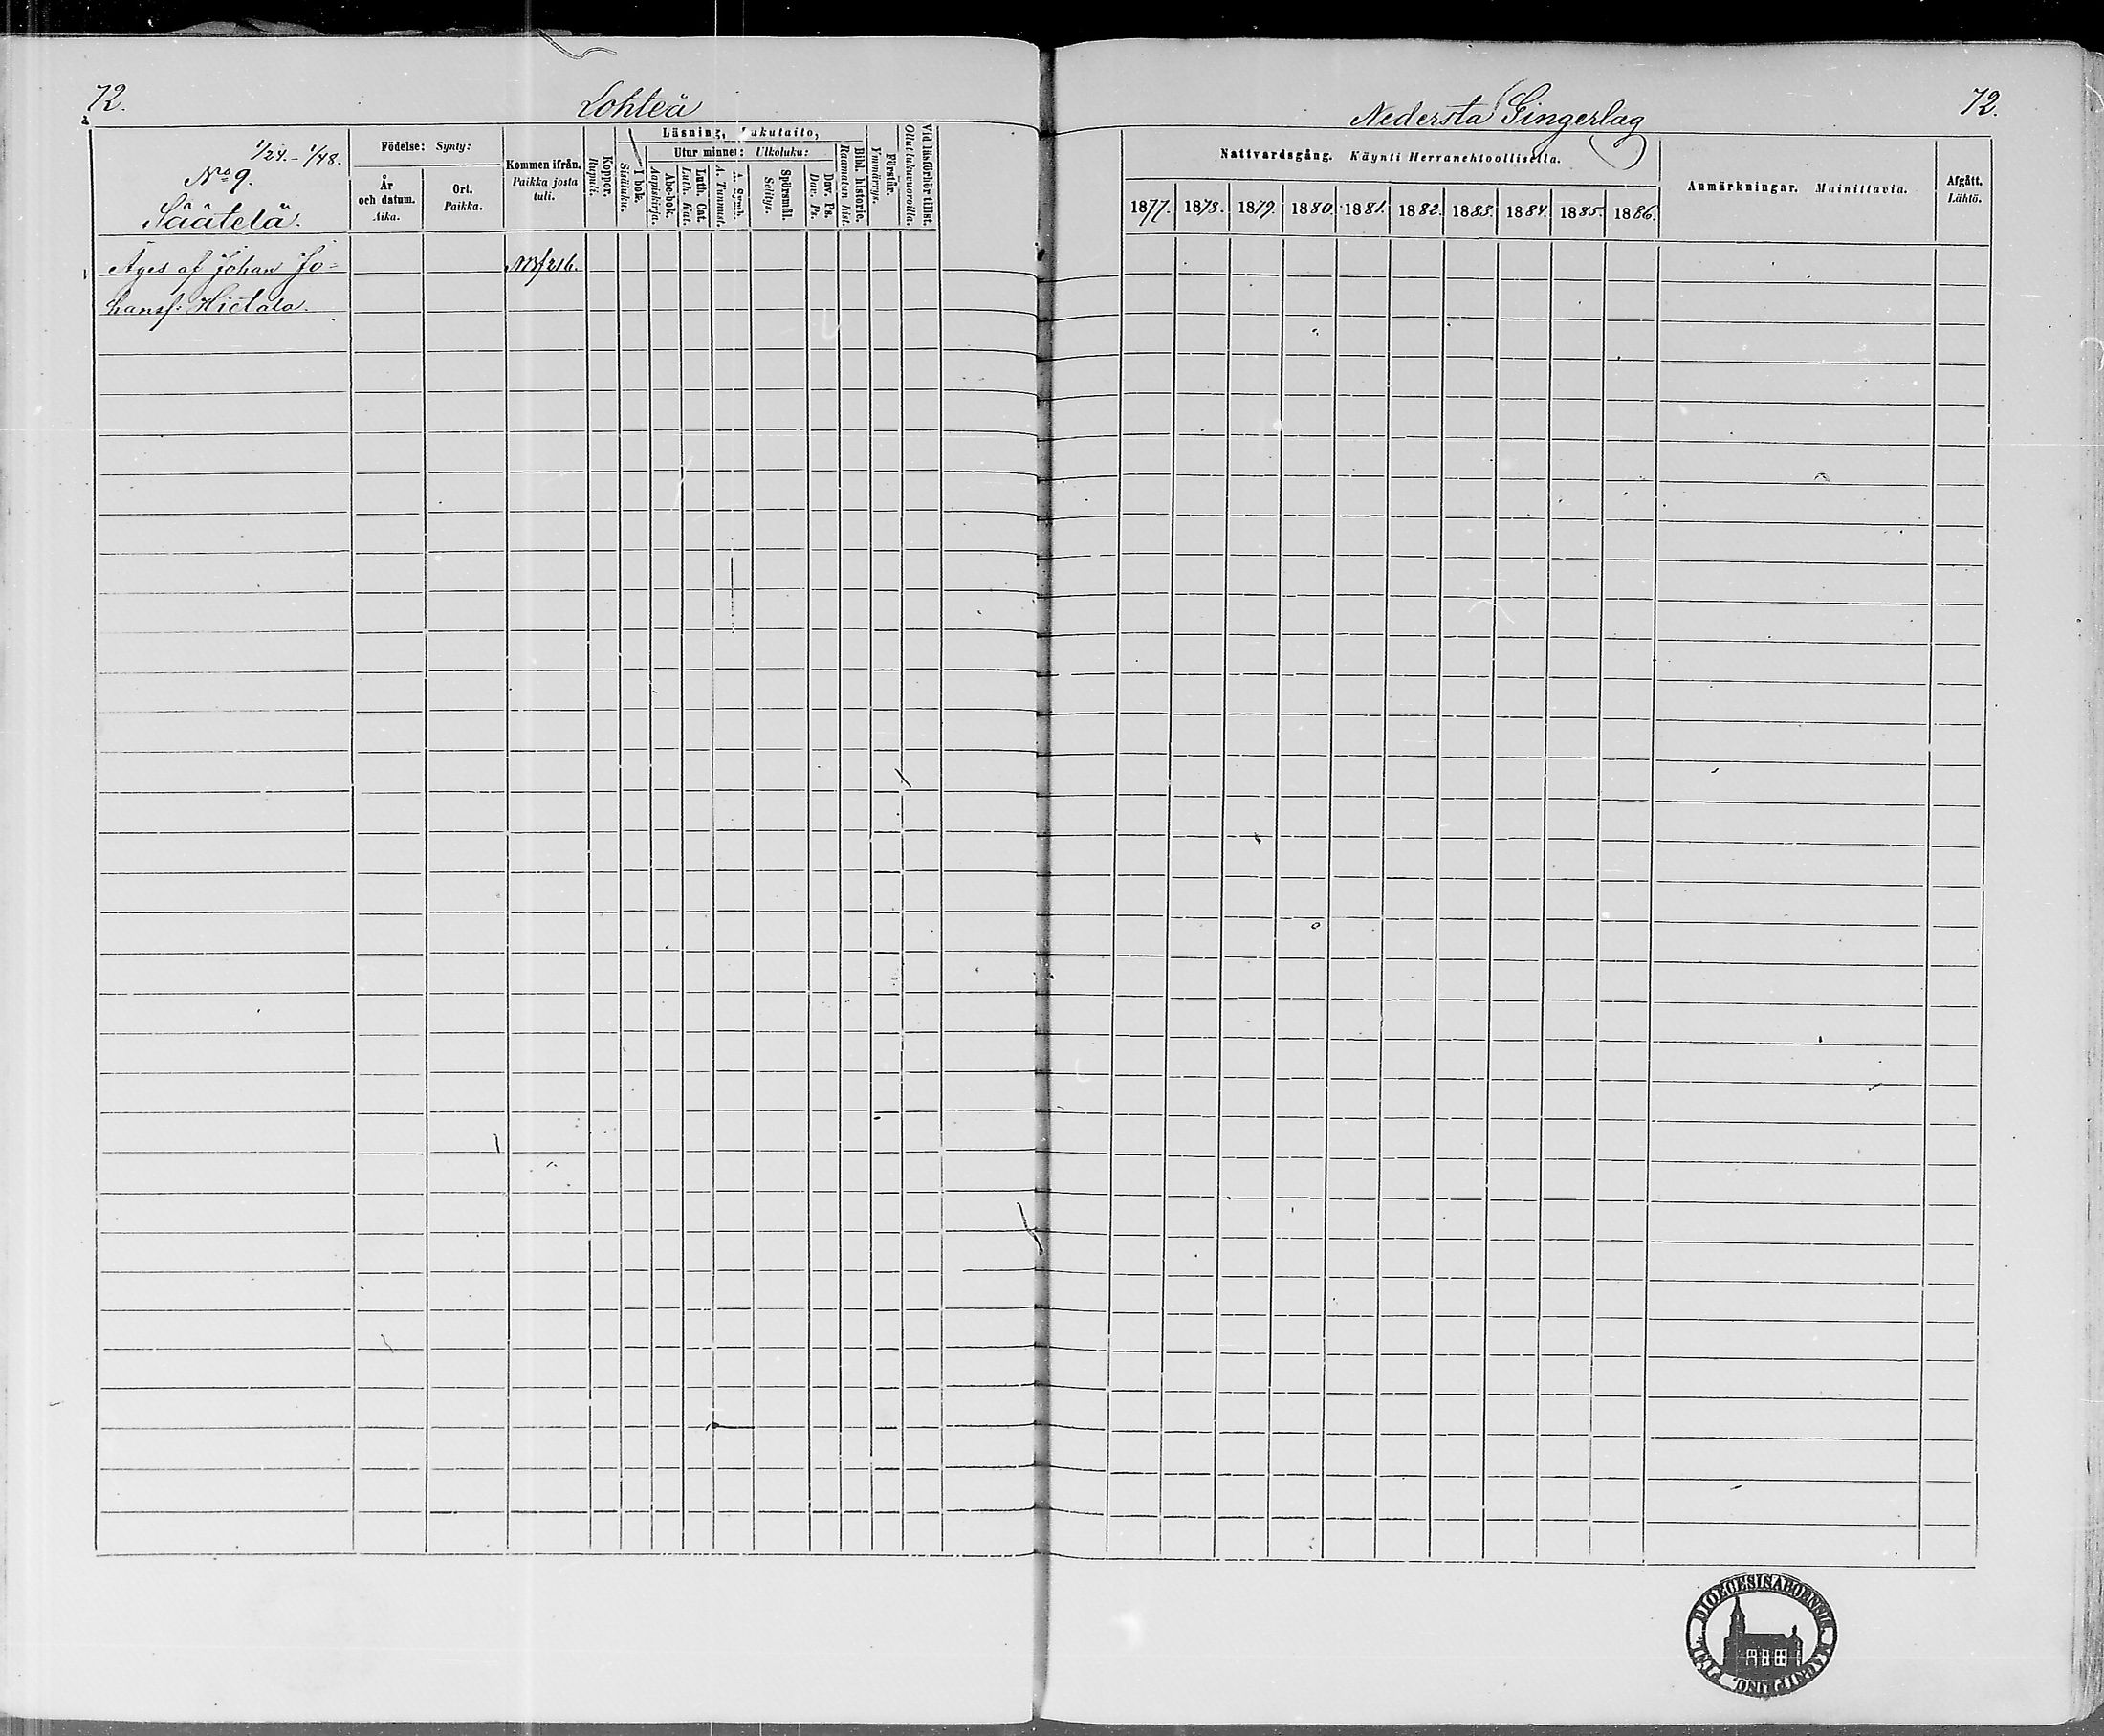 72.
Lohteå
1/24. - 1/48.
No 9.
Säätelä.
Födelse: Synty:
År och datum. Aika.
Ort. Paikka.
Kommen ifrån. Paikka josta tuli.
Koppor. Rupuli.
Läsning, Lukutaito,
I bok. Sisäluku.
Utur minnet: Ulkoluku:
Abc-bok. Aapiskirja.
Luth. Cat. Luth. Kat.
A. Symb. A. Tunnust.
Spörsmål. Selitys.
Dav. Ps. Dav. Ps.
Bibl. historie. Raamatun hist.
Förstår. Ymmärrys.
Vid läsförhör tillst. Ollut lukuvuoroilla.
Äges af Johan Jo-
hansf: Hietala.
216.
Nedersta Gingerlag
72.
Nattvardsgång. Käynti Herranehtoollisella.
1877. 1878. 1879. 1880. 1881. 1882. 1883. 1884. 1885. 1886.
Anmärkningar. Mainittavia.
Afgått. Lähtö.